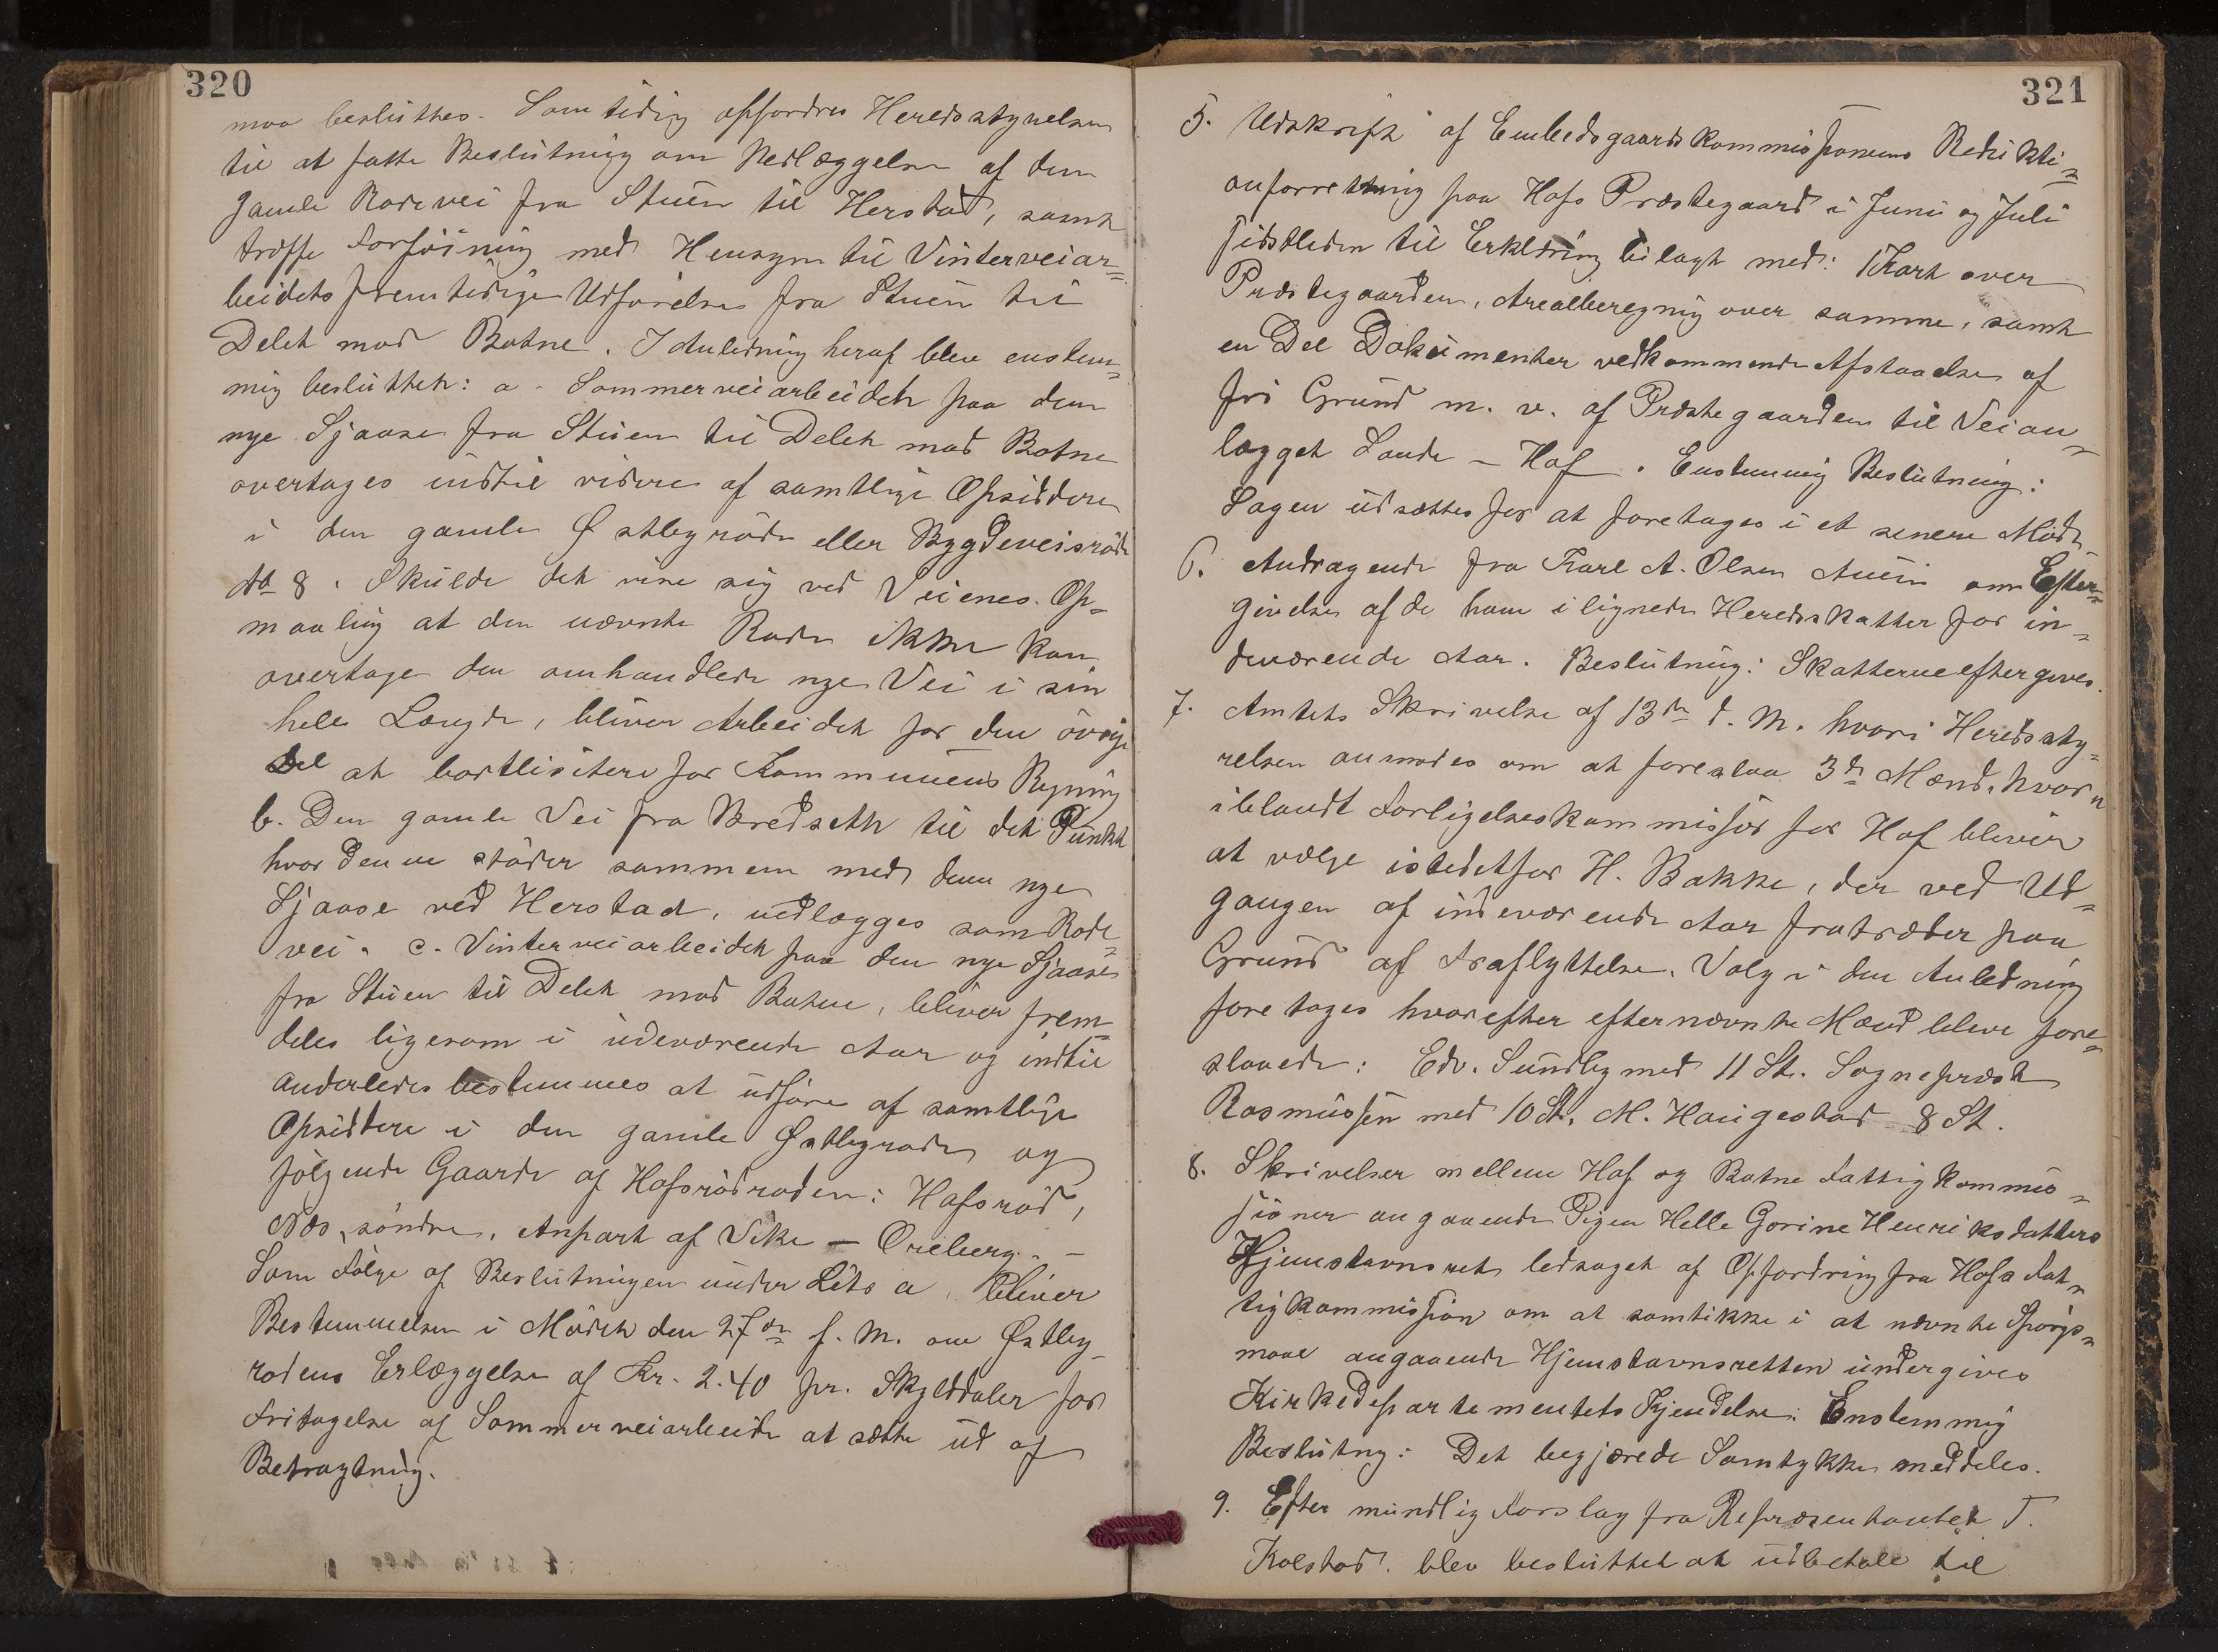 320
maa besluttes. Samtidig opfordres Heredsstyrelsen
til at fatte Beslutning om Nedlæggelse af den
gamle Rodevei fra Stuen til Herstad, samt
træffe Forføining med Hensyn til Vinterveiar=
beidets fremtidige Udførelse fra Stuen til
Delet mod Botne. I Anledning heraf blev enstem=
mig besluttet: a. Sommerveiarbeidet paa den
nye Sjaase fra Stuen til Delet mod Botne
overtages indtil videre af samtlige Opsiddere
i den gamle Østbyrode eller Bygdeveisrode
No 8. Skulde det vise sig ved Veienes Op=
maaling at den nævnte Rode ikke kan
overtage den omhandlede nye Vei i sin
hele Længde, bliver Arbeidet for den øvrige
Del at bortlicitere for Kommunens Regning
b. Den gamle Vei fra Bredseth til det Punkt
hvor denne støder sammen med den nye
Sjaase ved Herstad, nedlægges som Rode=
vei. c. Vinterveiarbeidet paa den nye Sjaase
fra Stuen til Delet mod Botne, bliver frem=
deles ligesom i indeværende Aar og indtil
anderledes bestemmes at udføre af samtlige
Opsiddere i den gamle Østbyrode og
følgende Gaarde af Hofsrødroden: Hofsrød,
Næs, søndre, Anpart af Vike – Oreberg. –
Som Følge af Beslutningen under Litr a, bliver
Bestemmelsen i Mødet den 27de f. M. om Østby=
rodens Erlæggelse af Kr. 2.40 pr. Skylddaler for
Fritagelse af Sommerveiarbeide at sætte ud af
Betragtning.
321
5. Udskrift af Embedsgaardskommissionens Redukti=
onsforretning paa Hofs Præstegaard i Juni og Juli
sidstleden til Erklæring bilagt med: Kart over
Præstegaarden, Arealberegnig over samme, samt
en Del Dokumenter vedkommende Afstaaelse af
fri Grund m. v. af Præstegaarden til Veian=
lægget Sande – Hof. Enstemmig Beslutning:
Sagen udsættes for at foretages i et senere Møde.
6. Andragende fra Karl A. Olsen Auen om Efter=
givelse af de ham ilignede Heredsskatter for in=
deværende Aar. Beslutning: Skatterne eftergives.
7. Amtets Skrivelse af 13de d. M. hvori Heredssty=
relsen anmodes om at foreslaa 3de Mænd, hvor=
iblandt Forligelseskommissær for Hof bliver
at vælge istedetfor H. Bakke, der ved Ud=
gangen af indeværende Aar fratræder paa
Grund af Fraflyttelse. Valg i den Anledning
foretages hvorefter efternævnte Mænd bleve fore=
slaaede: Edv. Sundby med 11 St. Sognepræst
Rasmussen med 10 St. M. Haugestad 8 St.
8. Skrivelser mellem Hof og Botne Fattigkommis=
sioner angaaende Pigen Helle Gorine Henriksdatters
Hjemstavnsret ledsaget af Opfordring fra Hofs Fat=
tigkommission om at samtikke i at nævnte Spørgs=
maal angaaende Hjemstavnsretten undergives
Kirkedepartementets Kjendelse. Enstemmig
Beslutng: Det begjærede Samtykke meddeles.
9. Efter mundlig Forslag fra Repræsentantet T.
Kolstad. blev besluttet at udbetale til